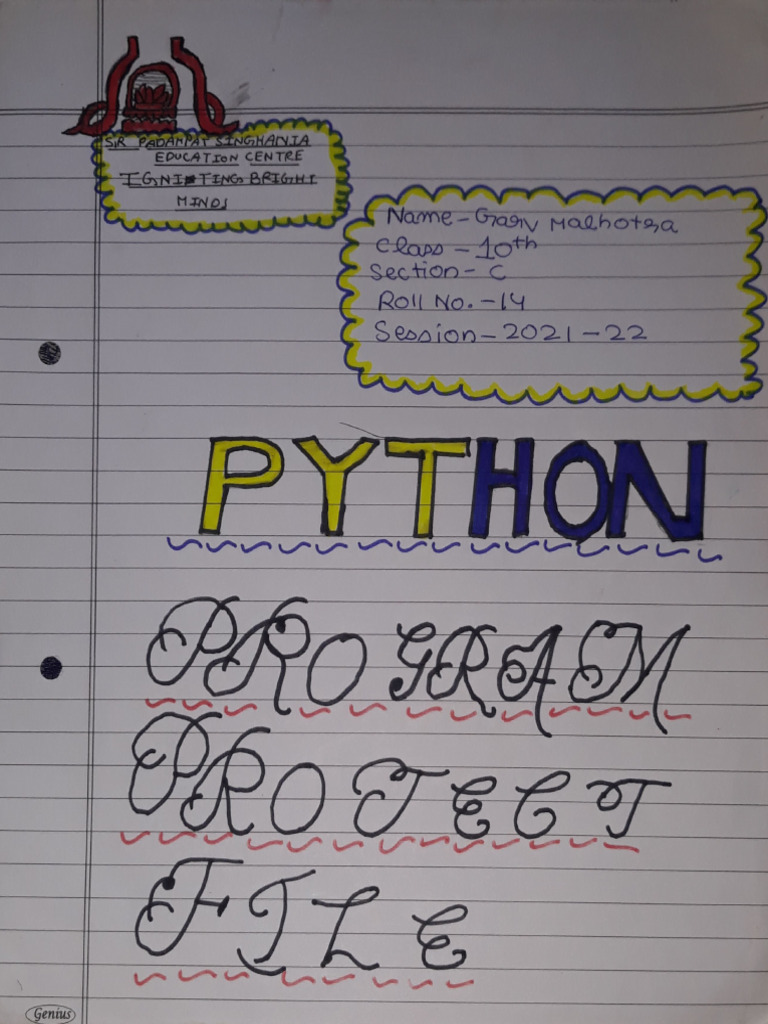 SIR PADAMPAT SINGHANIA
EDUCATION CENTRE
IGNITING BRIGHT
MINDS
Name - Garv Malhotra
Class - 10th
Section - C
Roll No. - 14
Session - 2021 - 22
PYTHON
PROGRAM
PROJECT
FILE
Genius